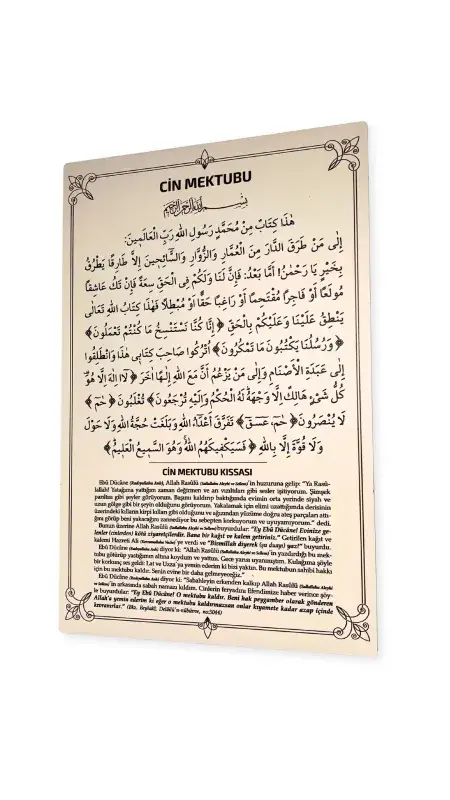 CİN MEKTUBU
بِسْمِ اللّٰهِ الرَّحْمٰنِ الرَّحِيمِ
هٰذَا كِتَابٌ مِنْ مُحَمَّدٍ رَسُولِ اللّٰهِ رَبِّ الْعَالَمِينَ:
اِلٰى مَنْ طَرَقَ الدَّارَ مِنَ الْعُمَّارِ وَالزُّوَّارِ وَالسَّائِحِينَ اِلَّا طَارِقًا يَطْرُقُ
بِخَيْرٍ يَا رَحْمٰنُ! اَمَّا بَعْدُ: فَاِنَّ لَنَا وَلَكُمْ فِى الْحَقِّ سِعَةً فَاِنْ تَكُ عَاشِقًا
مُولَعًا اَوْ فَاجِرًا مُقْتَحِمًا اَوْ رَاغِبًا حَقًّا اَوْ مُبْطِلًا فَهٰذَا كِتَابُ اللّٰهِ تَعَالٰى
يَنْطِقُ عَلَيْنَا وَعَلَيْكُمْ بِالْحَقِّ ﴿ اِنَّا كُنَّا نَسْتَنْسِخُ مَا كُنْتُمْ تَعْمَلُونَ ﴾
﴿ وَرُسُلُنَا يَكْتُبُونَ مَا تَمْكُرُونَ ﴾ اُتْرُكُوا صَاحِبَ كِتَابِى هٰذَا وَانْطَلِقُوا
اِلٰى عَبَدَةِ الْاَصْنَامِ وَاِلٰى مَنْ يَزْعُمُ اَنَّ مَعَ اللّٰهِ اِلٰهًا اٰخَرَ ﴿ لَا اِلٰهَ اِلَّا هُوَ
كُلُّ شَىْءٍ هَالِكٌ اِلَّا وَجْهَهُ لَهُ الْحُكْمُ وَاِلَيْهِ تُرْجَعُونَ ﴾ تُغْلَبُونَ ﴿ حٰمٓ ﴾
لَا يُنْصَرُونَ ﴿ حٰمٓ عٓسٓقٓ ﴾ تَفَرَّقَ اَعْدَاءُ اللّٰهِ وَبَلَغَتْ حُجَّةُ اللّٰهِ وَلَا حَوْلَ
وَلَا قُوَّةَ اِلَّا بِاللّٰهِ ﴿ فَسَيَكْفِيكَهُمُ اللّٰهُ وَهُوَ السَّمِيعُ الْعَلِيمُ ﴾
CİN MEKTUBU KISSASI
Ebû Dücâne (Radıyallahu Anh), Allah Rasûlü (Sallallahu Aleyhi ve Sellem)'in huzuruna gelip: "Ya Rasû-
lallah! Yatağına yattığım zaman değirmen ve arı vızıltıları gibi sesler işitiyorum. Şimşek
parıltısı gibi şeyler görüyorum. Başımı kaldırıp baktığımda evimin orta yerinde siyah ve
uzun gölge gibi bir şeyin olduğunu görüyorum. Yakalamak için elimi uzattığımda derisinin
üzerindeki kılların kirpi kılları gibi olduğunu ve ağzından yüzüme doğru ateş parçaları attı-
ğını görüp beni yakacağını zannediyor bu sebepten korkuyorum ve uyuyamıyorum." dedi.
Bunun üzerine Allah Rasûlü (Sallallahu Aleyhi ve Sellem) buyurdular: "Ey Ebû Dücâne! Evinize ge-
lenler (cinlerden) kötü ziyaretçilerdir. Bana bir kağıt ve kalem getiriniz." Getirilen kağıt ve
kalemi Hazreti Ali 'ye verdi ve "Bismillah diyerek (şu duayı) yaz!" buyurdu.
Ebû Dücâne (Radıyallahu Anh) diyor ki: "Allah Rasûlü (Sallallahu Aleyhi ve Sellem)'in yazdırdığı bu mek-
tubu götürüp yastığımın altına koydum ve yattım. Gece yarısı uyanmıştım. Kulağıma şöyle
bir korkunç ses geldi: Lat ve Uzza'ya yemin ederim ki bizi yaktın. Bu mektubun sahibi hakkı
için bu mektubu kaldır. Senin evine bir daha gelmeyeceğiz."
Ebû Dücâne (Radıyallahu Anh) diyor ki: "Sabahleyin erkenden kalkıp Allah Rasûlü (Sallallahu Aleyhi
ve Sellem)'in arkasında sabah namazı kıldım. Cinlerin feryadını Efendimize haber verince şöy-
le buyurdular: "Ey Ebû Dücâne! O mektubu kaldır. Beni hak peygamber olarak gönderen
Allah'a yemin ederim ki eğer o mektubu kaldırmazsan onlar kıyamete kadar azap içinde
kıvranırlar." (Bkz. Beyhakî, Delâilü'n-nübüvve, no:3044)